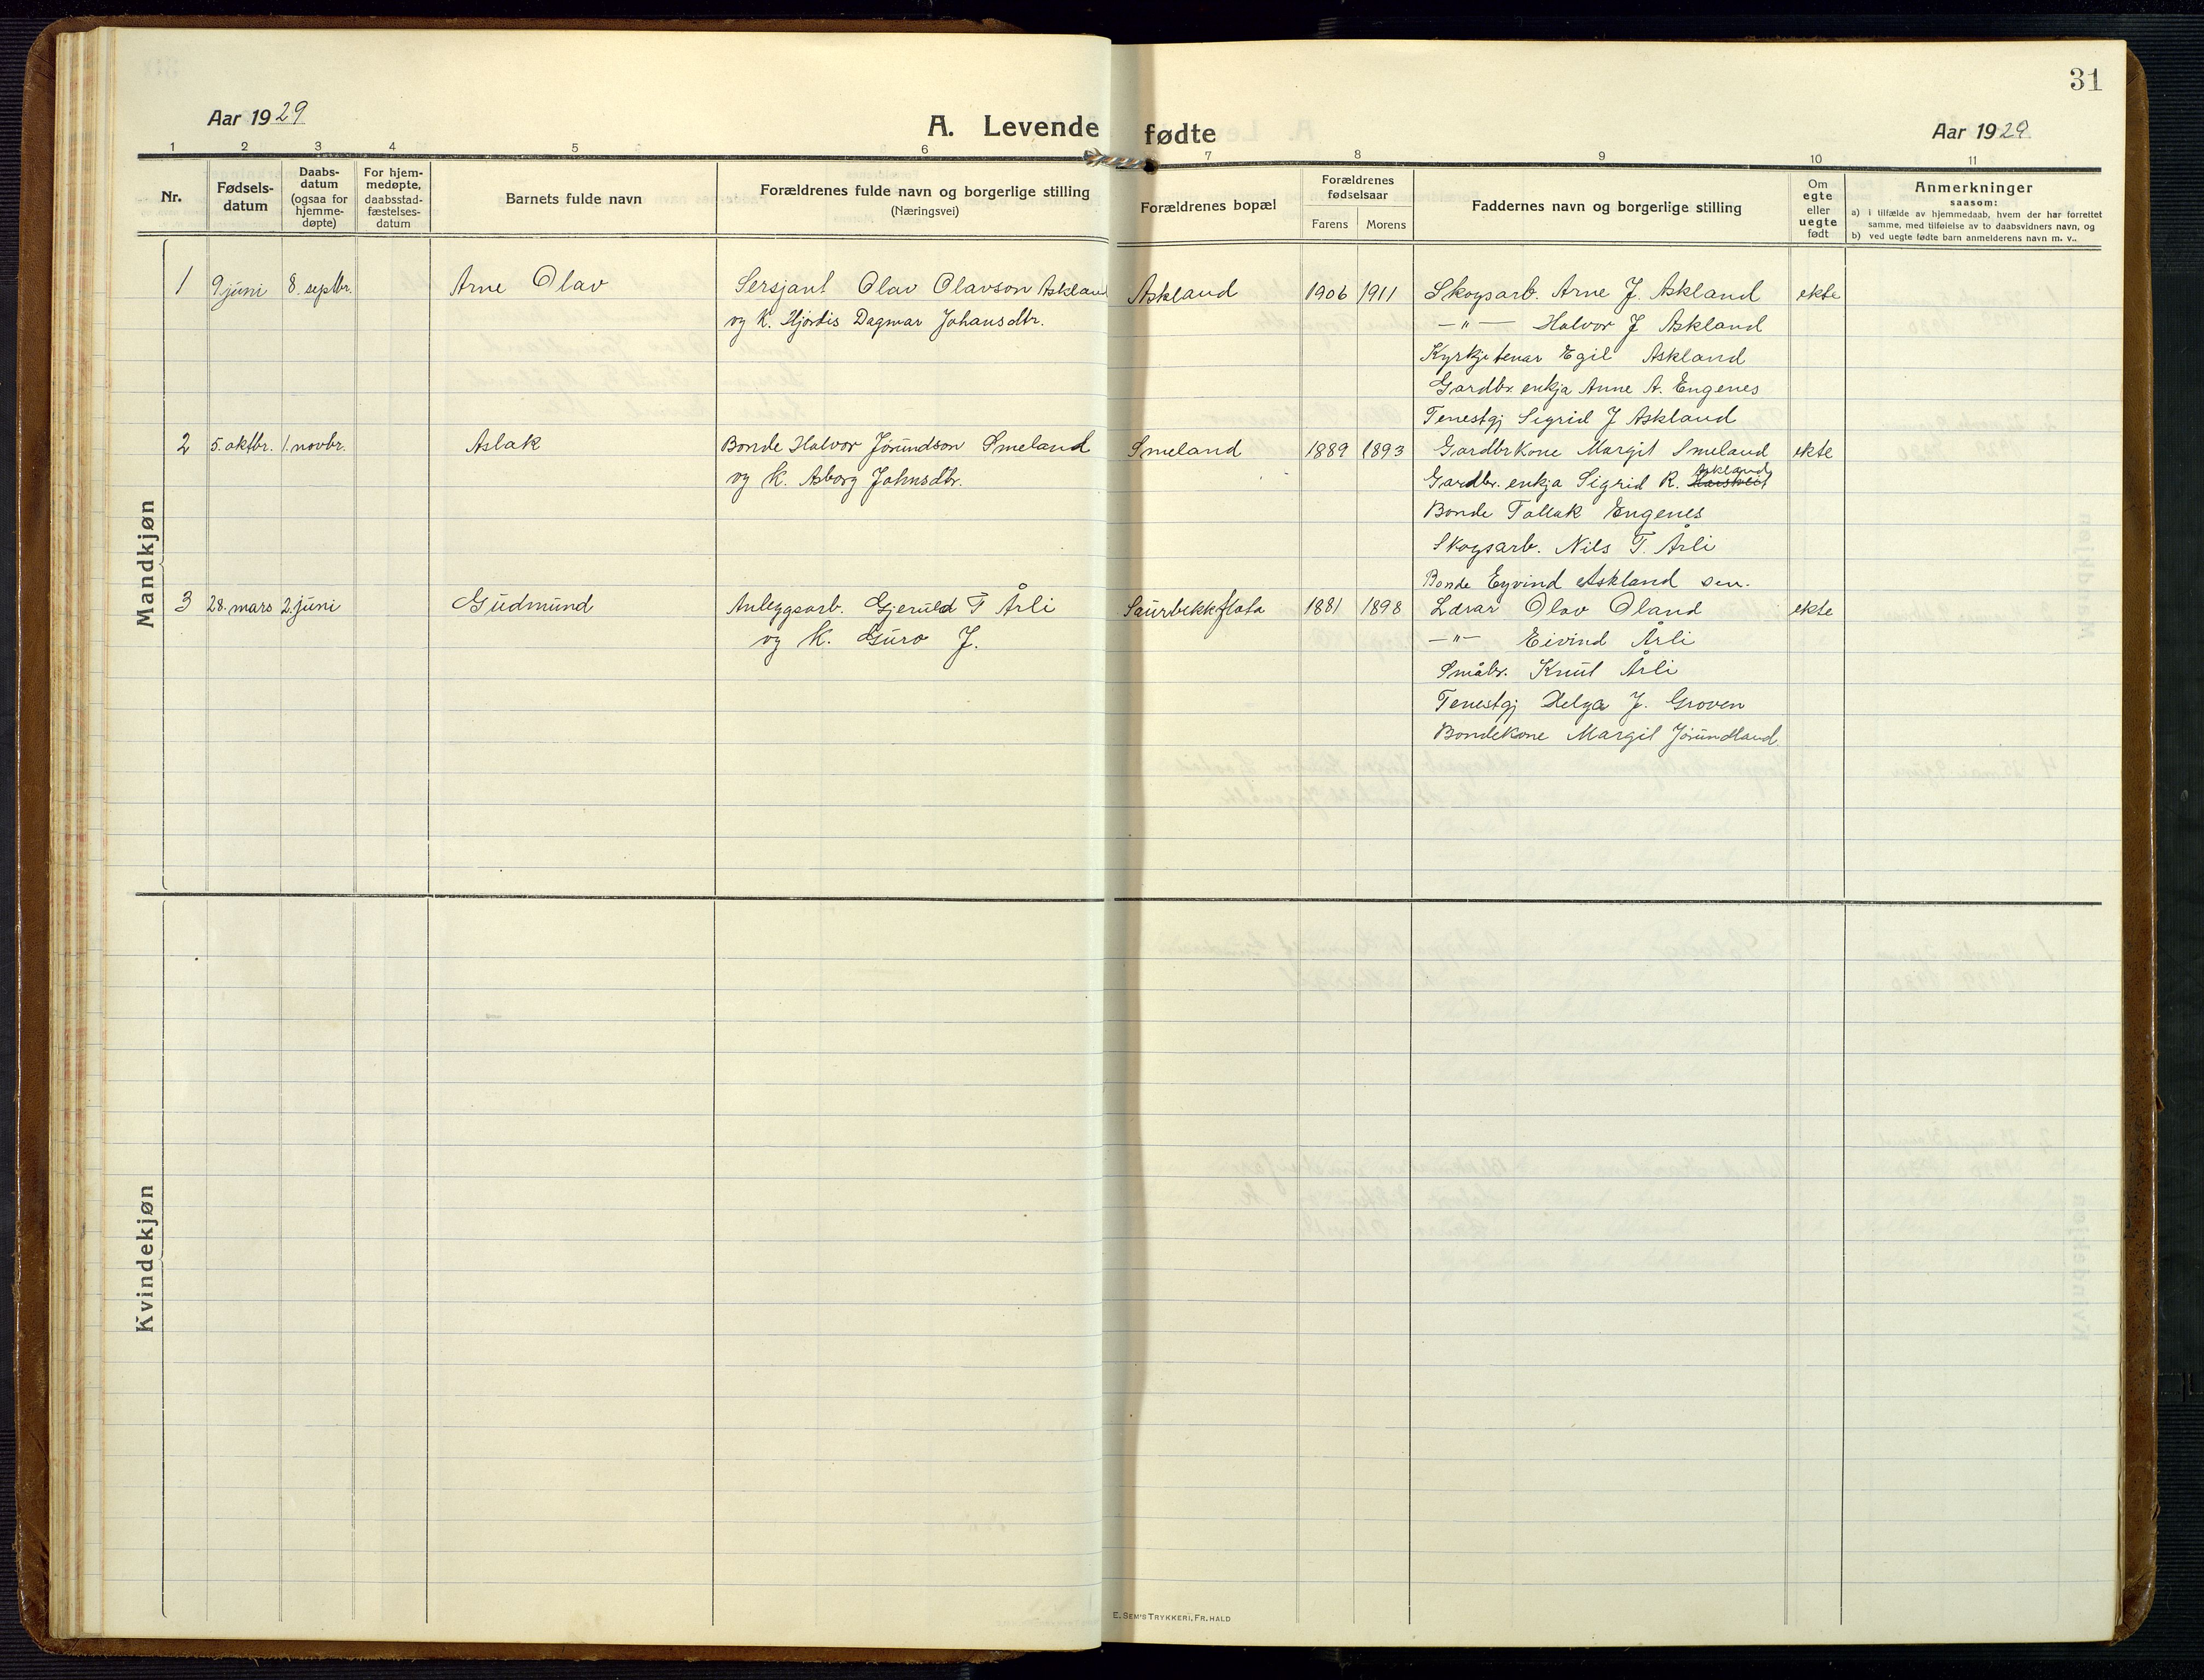 31
Aar 1929
A. Levende fødte
Aar 1929
1 2 3 4 5 6 7 8 9 10 11
Nr.
Fødsels-
datum
Daabs-
datum
(ogsaa for
hjemme-
døpte)
For hjem-
medøpte,
daabsstad-
fæstelses-
datum
Barnets fulde navn
Forældrenes fulde navn og borgerlige stilling
(Næringsvei)
Forældrenes bopæl
Forældrenes
fødselsaar
Farens Morens
Faddernes navn og borgerlige stilling
Om
egte
eller
uegte
født
Anmerkninger
saasom:
a) i tilfælde av hjemmedaab, hvem der har forrettet
samme, med tilføielse av to daabsvidners navn, og
b) ved uegte fødte barn anmelderens navn m. v..
Mandkjøn
1 9 juni 8. septbr. Arne Olav Sersjant Olav Olavson Askland Askland 1906 1911 Skogsarb. Arne J. Askland ekte
og K. Hjørdis Dagmar Johansdtr. —"— Halvor J Askland
Kyrkjetenar Egil Askland
Gardbr. enkja Anne A. Engenes
Tenestgj Sigrid J Askland
2 5. oktbr. 1. novbr. Aslak Bonde Halvor Jørundson Smeland Smeland 1889 1893 Gardbrkone Margit Smeland ekte
og K. Asborg Johnsdtr. Gardbr. enkja Sigrid R. Askland
Bonde Tallak Engenes
Skogsarb. Nils T. Årli
Bonde Eyvind Askland sen.
3 28. mars 2. juni Gudmund Anleggsarb. Gjeruld T Årli Saurbekkflata 1881 1898 Lærar Olav Øland ekte
og K. Guro J. —"— Eivind Årli
Småbr. Knut Årli
Tenestgj Helga J. Groven
Bondekone Margit Jørundland.
Kvindekjøn
E. SEM'S TRYKKERI, FR. HALD